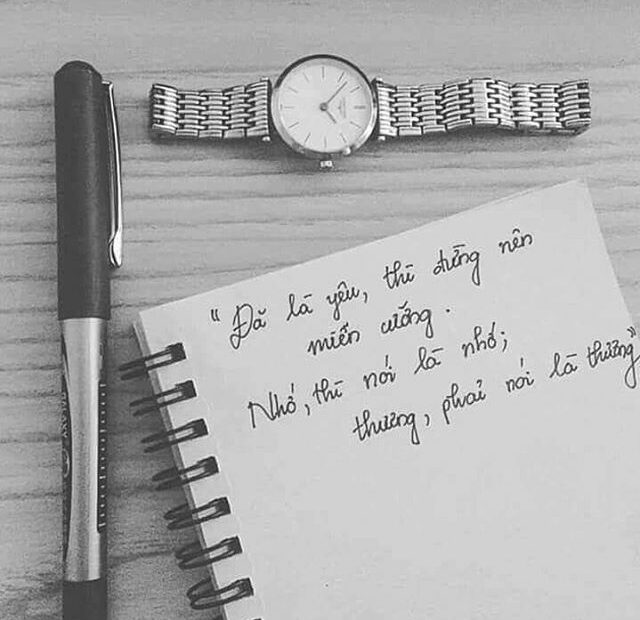 "Đã là yêu, thì đừng nên
miễn cưỡng.
Nhớ, thì nói là nhớ;
thương, phải nói là thương"